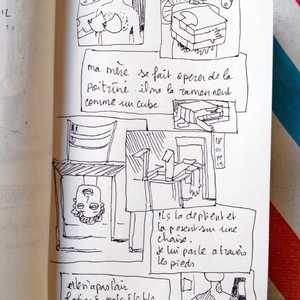 ma mère se fait opérer de la
poitrine ils me la ramènent
comme un cube
Ils la déplient et
la posent sur une
chaise.
je lui parle à travers
les pieds
elle n'a pas l'air